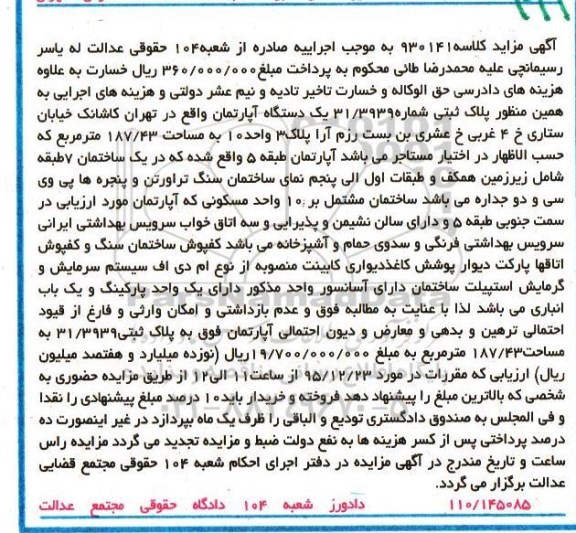 آگهی مزاید کلاسه۹۳۰۱۴۱ به موجب اجراییه صادره از شعبه۱۰۴ حقوقی عدالت له یاسر
رسیمانچی علیه محمدرضا طائی محکوم به پرداخت مبلغ۳۶۰/۰۰۰/۰۰۰ ریال خسارت به علاوه
هزینه های دادرسی حق الوکاله و خسارت تاخیر تادیه و نیم عشر دولتی و هزینه های اجرایی به
همین منظور پلاک ثبتی شماره۳۱/۳۹۳۹ یک دستگاه آپارتمان واقع در تهران کاشانک خیابان
ستاری خ ۴ غربی خ عشری بن بست رزم آرا پلاک۳ واحد۱۰ به مساحت ۱۸۷/۴۳ مترمربع که
حسب الاظهار در اختیار مستاجر می باشد آپارتمان طبقه ۵ واقع شده که در یک ساختمان ۷طبقه
شامل زیرزمین همکف و طبقات اول الی پنجم نمای ساختمان سنگ تراورتن و پنجره ها پی وی
سی و دو جداره می باشد ساختمان مشتمل بر ۱۰ واحد مسکونی که آپارتمان مورد ارزیابی در
سمت جنوبی طبقه ۵ و دارای سالن نشیمن و پذیرایی و سه اتاق خواب سرویس بهداشتی ایرانی
سرویس بهداشتی فرنگی و سدوی حمام و آشپزخانه می باشد کفپوش ساختمان سنگ و کفپوش
اتاقها پارکت دیوار پوشش کاغذدیواری کابینت منصوبه از نوع ام دی اف سیستم سرمایش و
گرمایش اسپیلت ساختمان دارای آسانسور واحد مذکور دارای یک واحد پارکینگ و یک باب
انباری می باشد لذا با عنایت به مطالبه فوق و عدم بازداشتی و امکان وارثی و فارغ از قیود
احتمالی ترهین و بدهی و معارض و دیون احتمالی آپارتمان فوق به پلاک ثبتی۳۱/۳۹۳۹ به
مساحت۱۸۷/۴۳ مترمربع به مبلغ ۱۹/۷۰۰/۰۰۰/۰۰۰ریال (نوزده میلیارد و هفتصد میلیون
ریال) ارزیابی که مقررات در مورد ۹۵/۱۲/۲۳ از ساعت۱۱ الی۱۲ از طریق مزایده حضوری به
شخصی که بالاترین مبلغ را پیشنهاد دهد فروخته و خریدار باید۱۰ درصد مبلغ پیشنهادی را نقدا
و فی المجلس به صندوق دادگستری تودیع و الباقی را ظرف یک ماه بپردازد در غیر اینصورت ده
درصد پرداختی پس از کسر هزینه ها به نفع دولت ضبط و مزایده تجدید می گردد مزایده راس
ساعت و تاریخ مندرج در آگهی مزایده در دفتر اجرای احکام شعبه ۱۰۴ حقوقی مجتمع قضایی
عدالت برگزار می گردد.
۱۱۰/۱۴۵۰۸۵ دادورز شعبه ۱۰۴ دادگاه حقوقی مجتمع عدالت